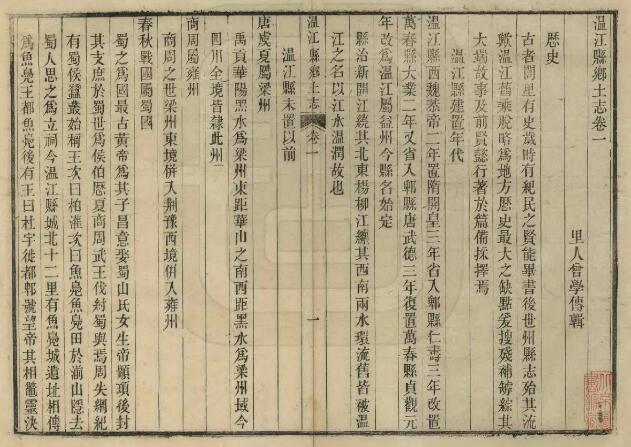 温江縣鄉土志卷一
里人曾學傳輯
歷史
古者閭星有史歲時有紀民之賢能畢書後世州縣志殆其流
歟温江舊乘脫略爲地方歷史最大之缺點爰搜殘補綜其
大端故事及前賢懿行著於篇備採擇焉
温江縣建置年代
温江縣西魏恭帝二年置隋開皇三年省入郫縣仁壽三年改置
萬春縣大業二年又省入郫縣唐武德三年復置萬春縣貞觀元
年改爲温江屬益州今縣名始定
縣治新開江繞其北東楊柳江纏其西南兩水環流舊皆被温
江之名以江水温潤故也
温江縣鄉土志 卷一 一
温江縣未置以前
唐虞夏屬梁州
禹貢華陽黑水爲梁州東距華山之南西距黑水爲梁州域今
四川全境皆隸此州
商周屬雍州
商周之世梁州東境併入荆豫西境併入雍州
春秋戰國屬蜀國
蜀之爲國最古黃帝爲其子昌意娶蜀山氏女生帝顓頊後封
其支庶於蜀世爲侯伯歷夏商周武王伐紂蜀與焉周失綱紀
有蜀侯蠶叢始稱王次曰柏灌次曰魚鳧魚鳧田於湔山隱去
蜀人思之爲立祠今温江縣城北十二里有魚鳧城遺址相傳
爲魚鳧王都魚鳧後有王曰杜宇徙都郫號望帝其相鼈靈決